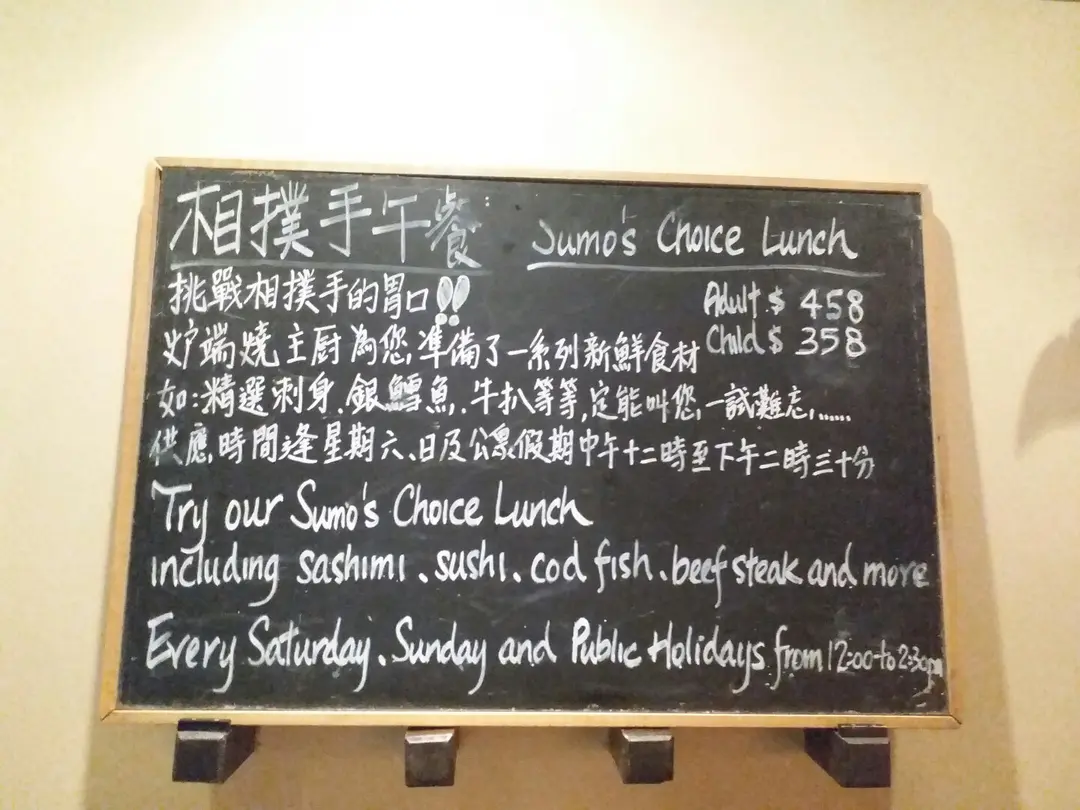 相撲手午餐 Sumo's Choice Lunch
挑戰相撲手的胃口!! Adult $ 458
炉端燒主厨為您準備了一系列新鮮食材 Child $ 358
如:精選刺身.銀鱈魚.牛扒等等,定能叫您,一試難忘,......
供應時間逢星期六、日及公眾假期中午十二時至下午二時三十分
Try our Sumo's Choice Lunch
including sashimi.sushi.cod fish.beef steak and more
Every Saturday.Sunday and Public Holidays from 12:00-to 2:30pm